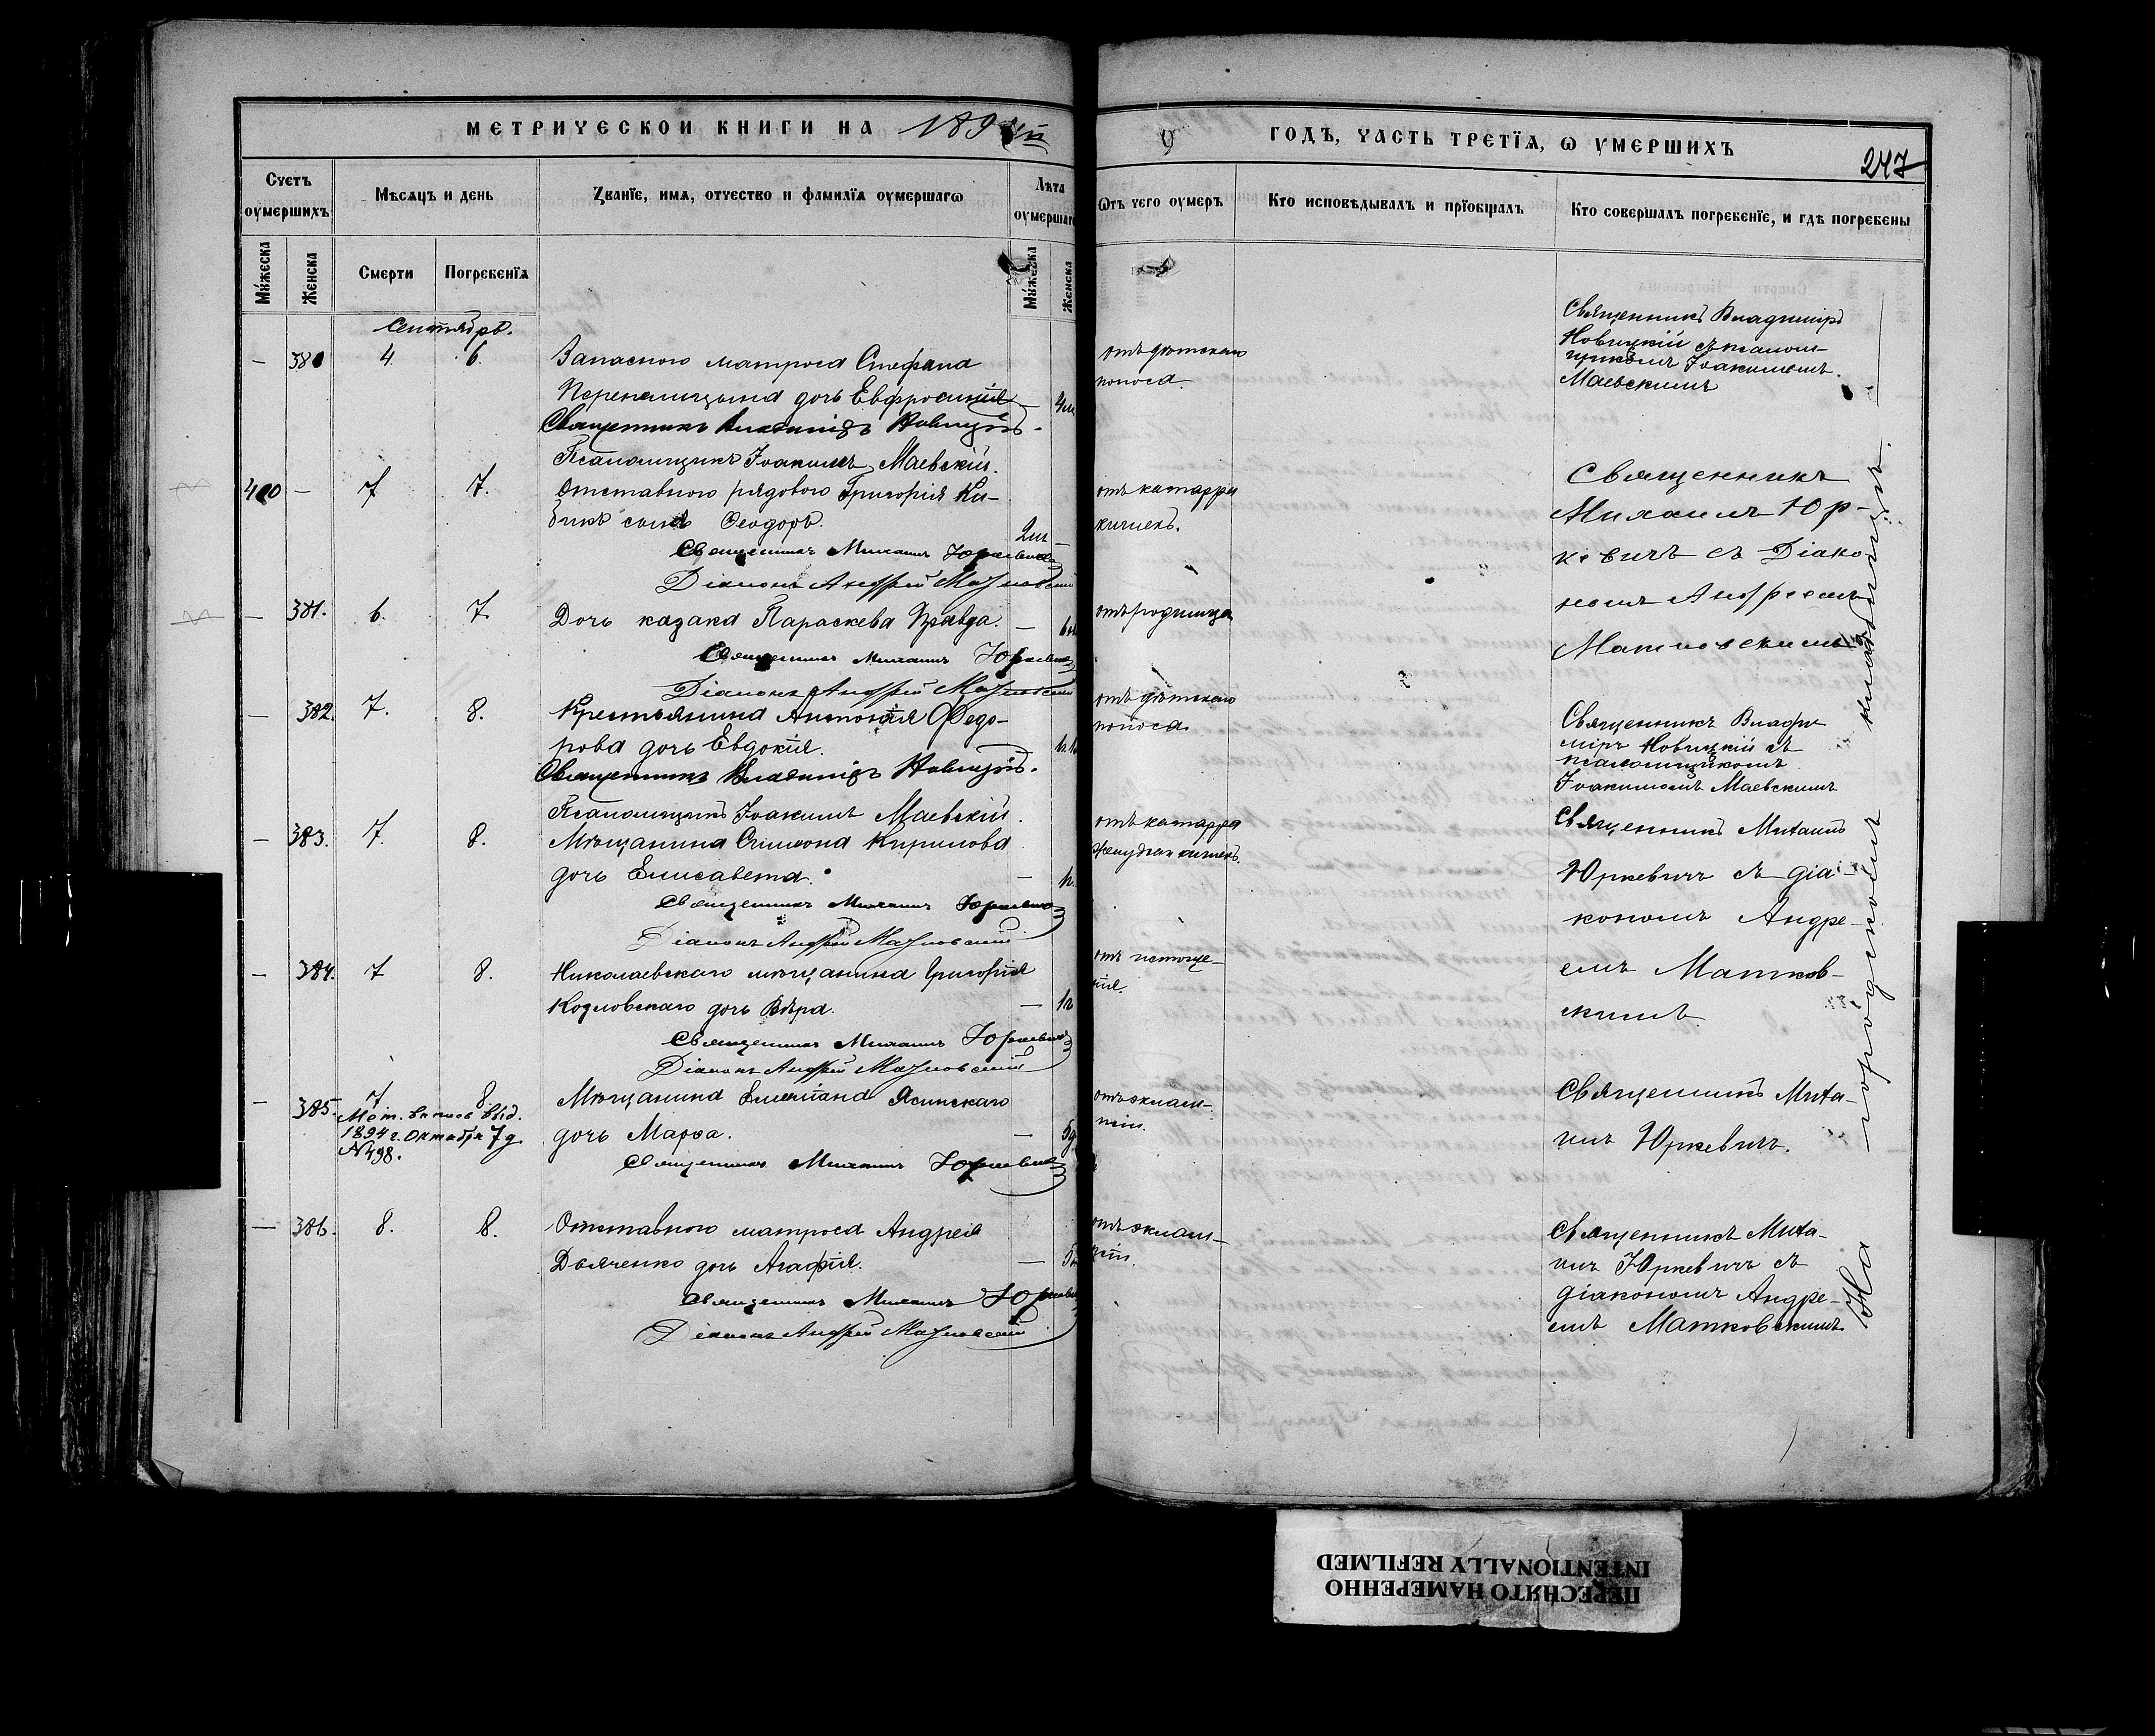 МЕТРИЧЕСКОЙ КНИГИ НА 189
ГОДЪ, ЧАСТЬ ТРЕТІЯ, Ѡ УМЕРШИХЪ
247
Счетъ оумершихъ
Мѣсяцъ и день
Званїе, имя, отчество и фамилїя оумершагѡ
Лѣта оумершаг
Ѡтъ чего оумеръ
Кто исповѣдывалъ и прїобщалъ
Кто совершалъ погребенїе, и гдѣ погребены
Мужеска
Женска
Смерти
Погребенїя
Мужеска
Женска
Сентябрь.
— 380 4 6. Запаснаго матроса Стефана
дочь Евфросинія — 4м
Священникъ Владиміръ Новицкій.
Псаломщикъ Іоакимъ Маевскій.
отъ дѣтскаго
поноса
Священникъ Владиміръ
Новицкій съ псалом-
щикомъ Іоакимомъ
Маевскимъ
400 — 7 7. Отставного рядового Григорія Ку-
сынъ Ѳеодоръ. 2м —
Священникъ Михаилъ Юркевичъ
Діаконъ Андрей Матковскій
отъ катарра
кишекъ.
Священникъ
Михаилъ Юр-
кевичъ съ Діако
номъ Андреемъ
Матковскимъ
— 381. 6. 7. Дочь казака Параскева Правда. — 6
Священникъ Михаилъ Юркевичъ
Діаконъ Андрей Матковскій
отъ родимца
— 382. 7. 8. Крестьянина Антонія Федо-
рова дочь Евдокія.
Священникъ Владиміръ Новицкій.
Псаломщикъ Іоакимъ Маевскій.
отъ дѣтскаго
поноса
Священникъ Влади
міръ Новицкій съ
псаломщикомъ
Іоакимомъ Маевскимъ
— 383. 7. 8. Мѣщанина Симеона Кирилова
дочь Елисавета. —
Священникъ Михаилъ Юркевичъ
Діаконъ Андрей Матковскій
отъ катарра
желудка и кишекъ.
Священникъ Михаилъ
Юркевичъ съ діа-
кономъ Андре-
емъ Матков-
скимъ.
— 384. 7 8. Николаевскаго мѣщанина Григорія
Козловскаго дочь Вѣра. — 1г
Священникъ Михаилъ Юркевичъ
Діаконъ Андрей Матковскій
отъ истоще-
нія.
— 385. 7 8. Мѣщанина Ясинскаго
дочь Марѳа. — 5д
Мет. выпись выд.
1894 г. Октября 7 д.
№498.
Священникъ Михаилъ Юркевичъ
отъ эклам-
псіи.
Священникъ Миха-
илъ Юркевичъ.
— 386. 8. 8. Отставного матроса Андрея
Дьяченко дочь Агафія. — 5
Священникъ Михаилъ Юркевичъ
Діаконъ Андрей Матковскій
отъ эклам-
псіи.
Священникъ Миха-
илъ Юркевичъ съ
діакономъ Андре-
емъ Матковскимъ
На городскомъ кладбищѣ
ПЕРЕСНЯТО НАМЕРЕННО
INTENTIONALLY REFILMED